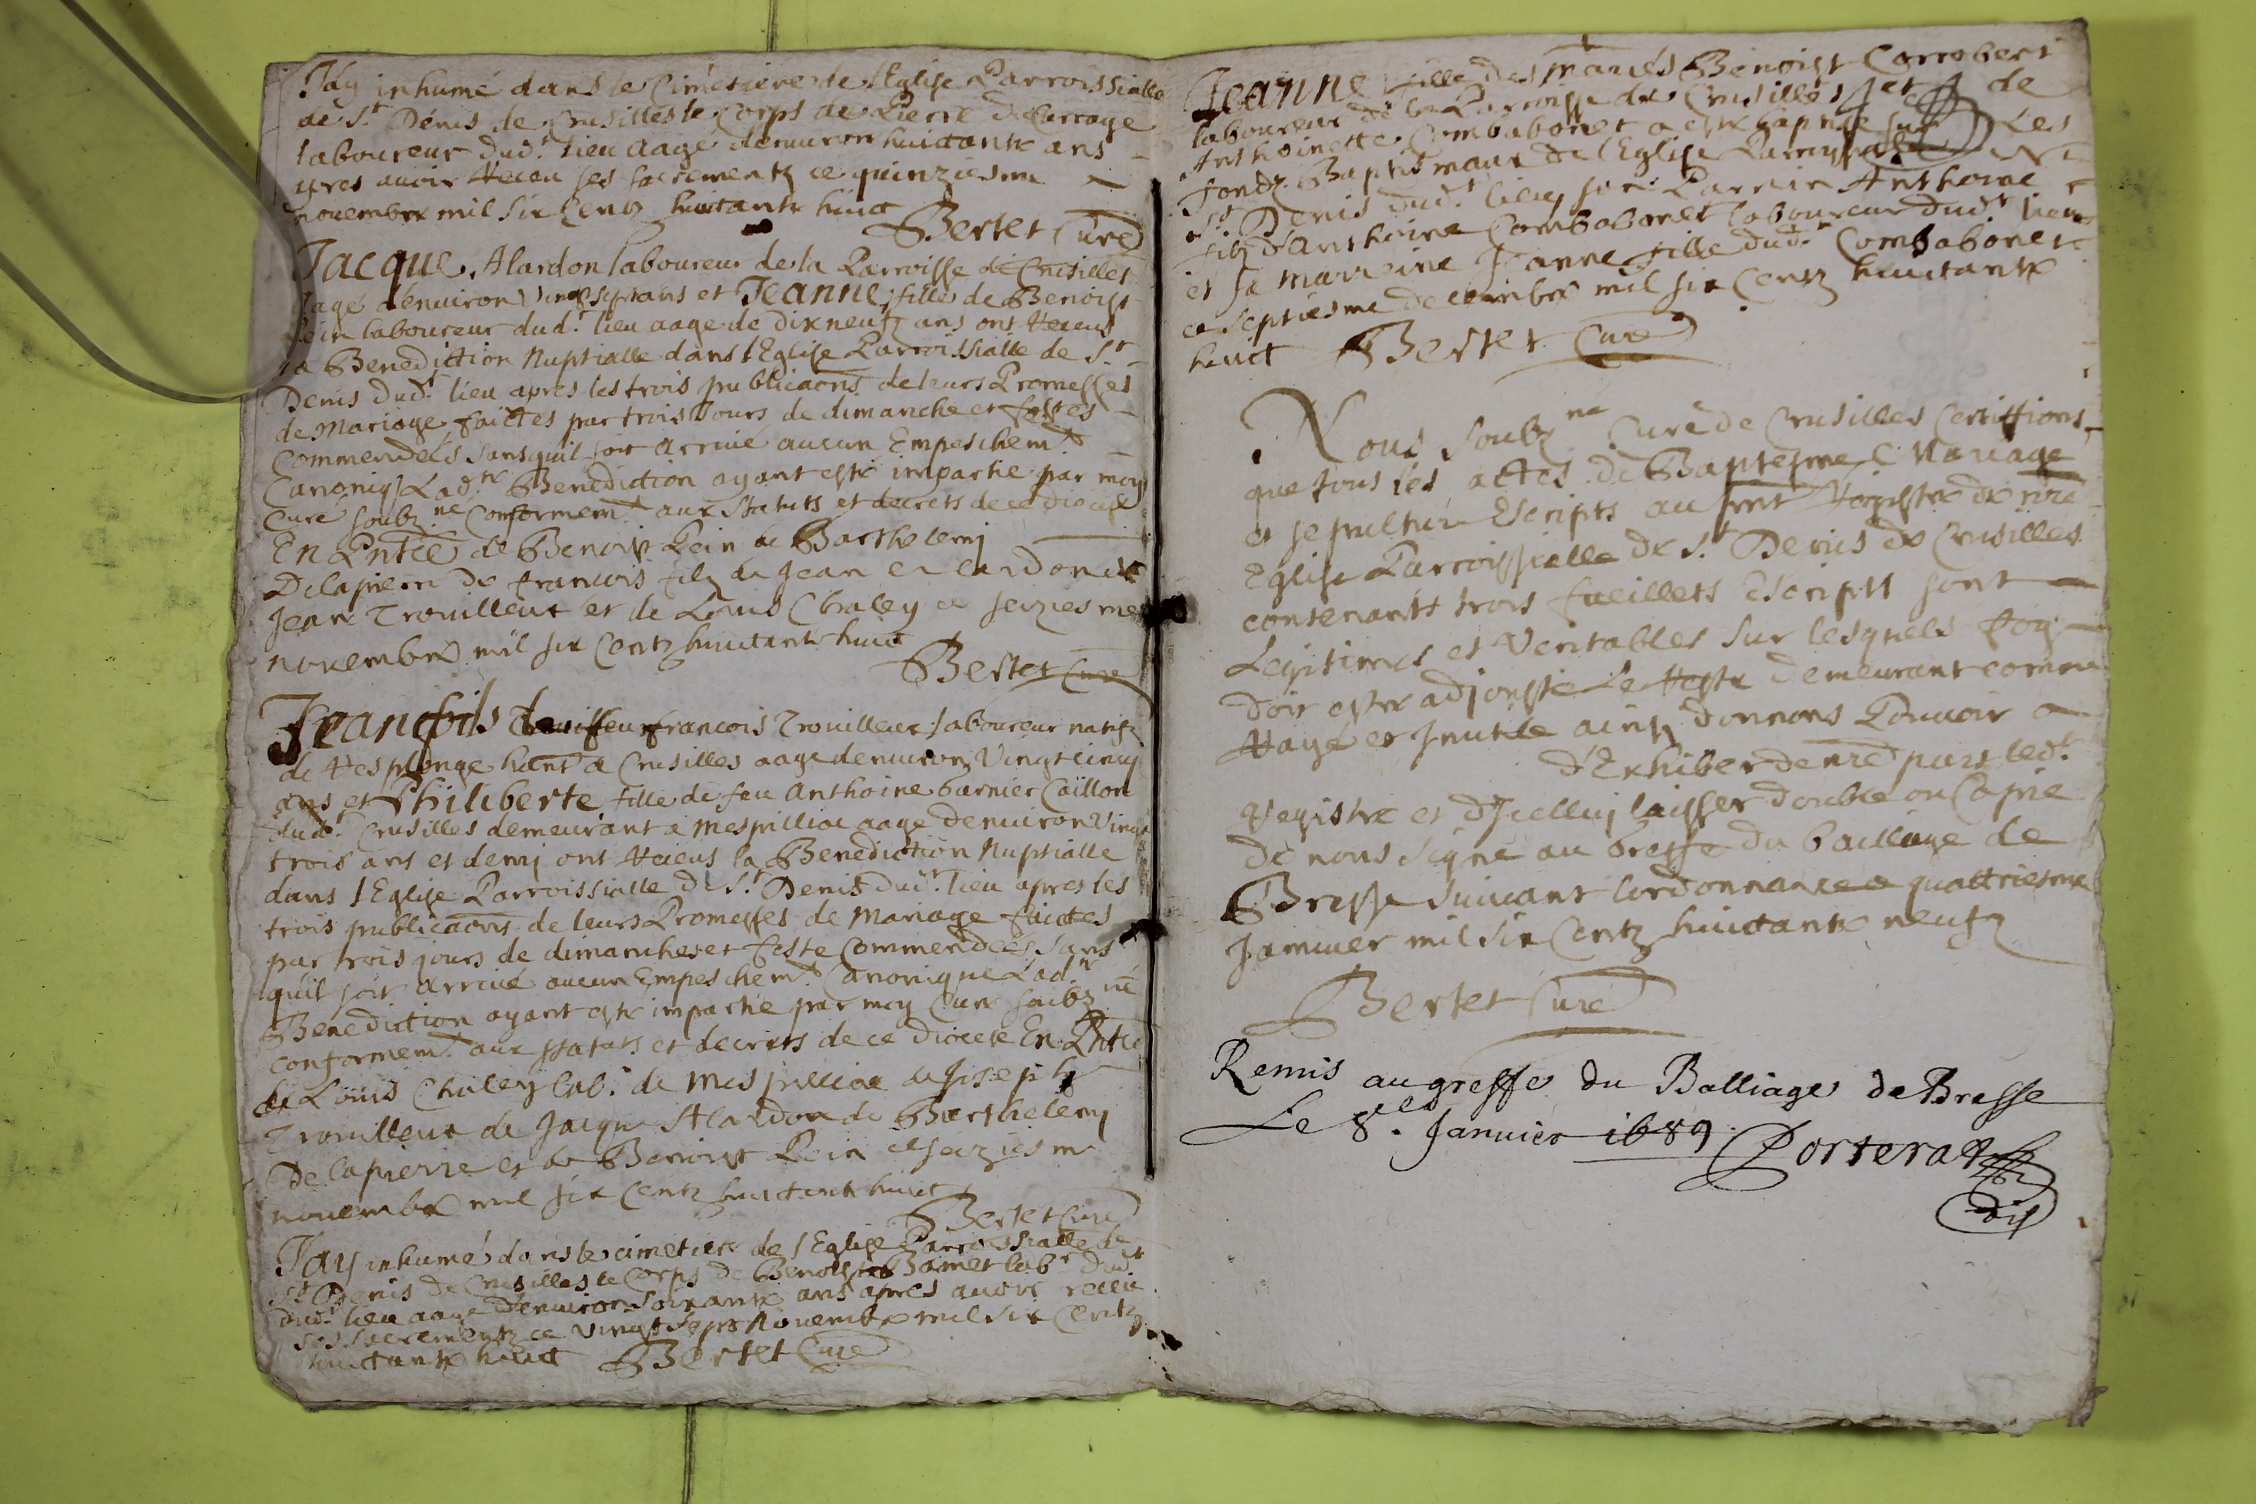 J'ay inhumé dans le Cimetiere de l'Eglise Parroissialle
de S.t Denis de Crusilles le Corps de Pierre
laboureur dud.t lieu aagé denuiron huictante ans
apres auoir Receu ses sacrementz ce quinziesme
novembre mil six Centz huictante huict
Bertet Curé
Jacque Alardon laboureur de la Parroisse de Crusilles
aagé denuiron Vingt sept ans et Jeanne fille de Benoist
Pein laboureur dud.t lieu aagé de dixneufz ans ont Receus
la Benediction Nuptialle dans l'Eglise Parroissialle de S.t
Denis dud.t lieu apres les trois publicaons de leurs Promesses
de Mariage faictes par trois Jours de dimanche et festes
Commendées sans quil soit arriué aucun Empeschem.t
Canoniq Lad.te Benediction ayant esté impartie par moy
Curé soubz.né Conformem.t aux Statuts et decrets de ce diocese
En Pntce de Benoist Pein de Barthelemj
Delapierre de francois filz de Jean
Jean Trouilleur et de Louis Chaley ce seiziesme
novembre mil six Centz huictante huict
Bertet Curé
francois Trouilleur laboureur natifz
de Resplonge hant a Crusilles aagé denuiron Vingt cinq
ans et Philiberte fille de feu Anthoine Garnier Caillon
dud.t Crusilles demeurant a Mespilliac aagé denuiron Vingt
trois ans et demj ont Receus la Benediction Nuptialle
dans l'Eglise Parroissialle de S.t Denis dud.t lieu apres les
trois publicaons de leurs Promesses de Mariage faictes
par trois jours de dimanches et feste Commendées sans
quil soit arriué aucun Empeschem.t Canonique Lad.te
Benediction ayant esté impartie par moy Curé soubz.né
conformem.t aux statuts et decrets de ce diocese En Pntce
de Louis Chaley lab.r de Mespilliac de Joseph
Trouilleur de Jacque Alardon de Barthelemj
Delapierre et de Benoist Pein ce seiziesme
novembre mil six Centz huictante huict
Bertet Curé
J'ay inhumé dans le cimetiere de l'Eglise Parroissialle de
S.t Denis de Crusilles le Corps de Benoist lab.r dud.t
dud.t lieu aagé denuiron soixante ans apres auoir receu
ses sacrementz ce vingt sept Nouembre mil six Centz
huictante huict Bertet Curé
Jeanne fille des Mariés Benoist Corrobert
laboureur de la Parroisse de Crusilles et de
Anthoinette Combabonet a esté baptisée sur Les
fondz Baptismaux de l'Eglise Parroissialle
S.t Denis dud.t lieu son Parrein Anthoine
filz d'Anthoine Combabonet laboureur dud.t lieu
et sa Marreine Jeanne fille dud.t Combabonet
ce septiesme decembre mil six Centz huictante
huict Bertet Curé
Nous Soubz.né Curé de Crusilles Certiffions
que tous les actes de Baptesme Mariage
et sepulture Escripts au pnt Registre de nre
Eglise Parroissialle de S.t Denis de Crusilles
contenants trois fueillets Escripts sont
Legitimes et Veritables sur lesquels foy
doit estre adjoustée Le Reste demeurant comme
Rayé et Inutile ainsy donnons Pouuoir a
d'Exhiber de nre part led.t
Registre et d'Icelluy laisser double ou Copie
de nous Signé au Greffe du Bailliage de
Bresse Suiuant lordonnance ce quattriesme
Januier mil six Centz huictante neufz
Bertet Curé
Remis au greffe du Balliage de Bresse
Le 8.e Januier 1689.
Porterat